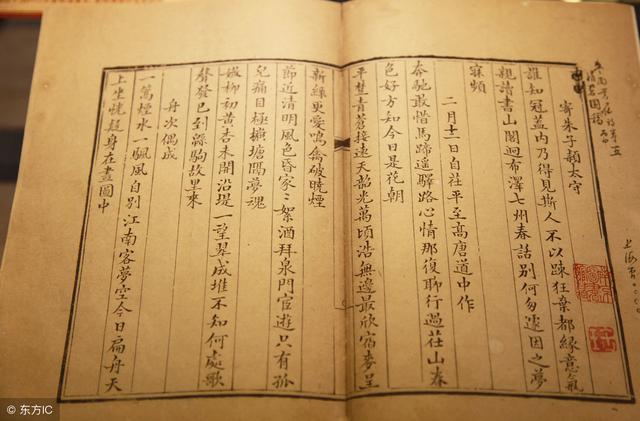 寄朱子頴太守
誰知冠蓋内乃得見斯人不以踈狂棄都緣意氣
親讀書山閣迥布澤七州春話别何匆遽因之夢
寐頻
二月十二日自茌平至高唐道中作
奔馳敢惜馬蹄遥驛路心情那復聊行過茌山春
色好方知今日是花朝
平楚青蒼接遠天韶光萬頃浩無邊最欣宿麥呈
新緑更愛鳴禽破曉煙
節近清明風色昏家〻絮酒拜泉門官逰只有孤
兒痛目極橫塘隔夢魂
嫩柳初黄杏未開沿堤一望翠成堆不知何處歌
聲發已到緜駒故里來
舟次偶成
一篙煙水一颿風自别江南客夢空今日扁舟天
上坐恍疑身在畫圖中
© 东方IC